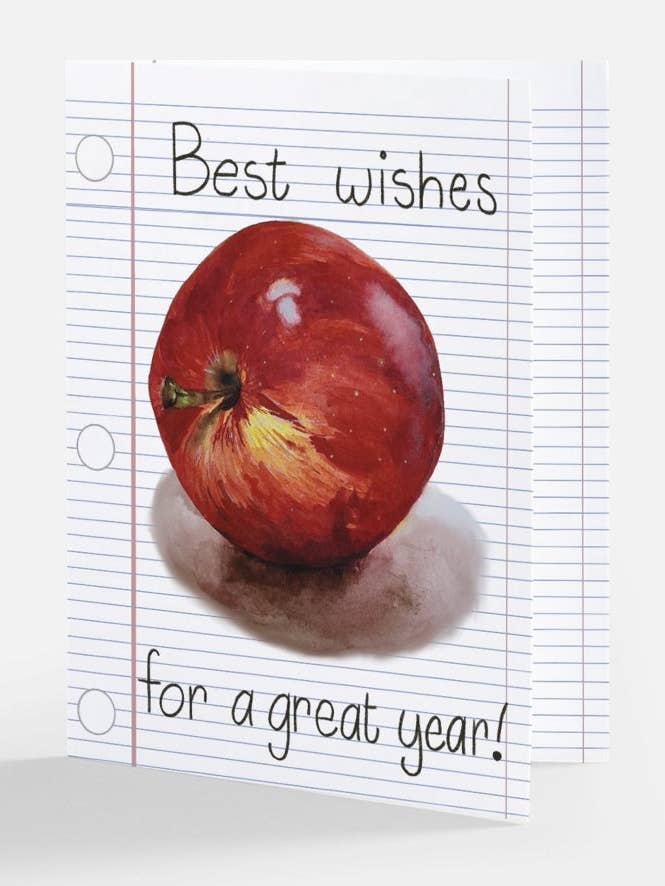 Best wishes
for a great year!